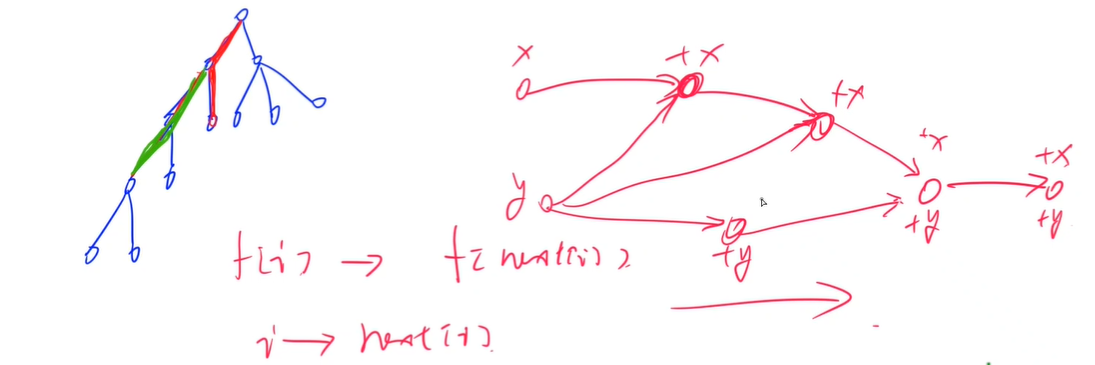 x
+x
+x
+x
+x
y
+y
+y
+y
f[i] → f[next[i]]
i → next[i]